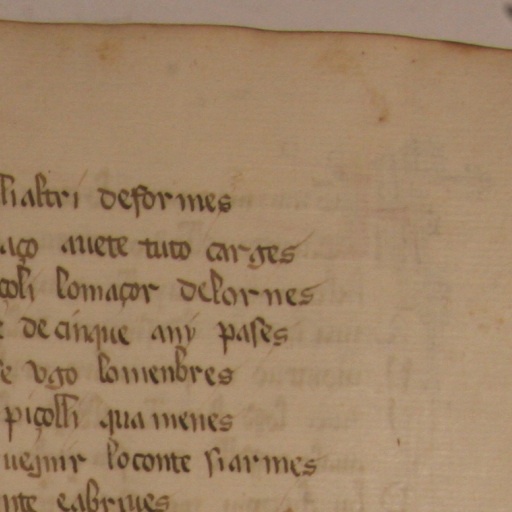 li altri deformes
aço avete tuto carges
çoli lo maçor delor nes
e de cinque any pases
e ugo lo menbres
piçolli qua menes
uegnir lo conte si armes
nte e abriues